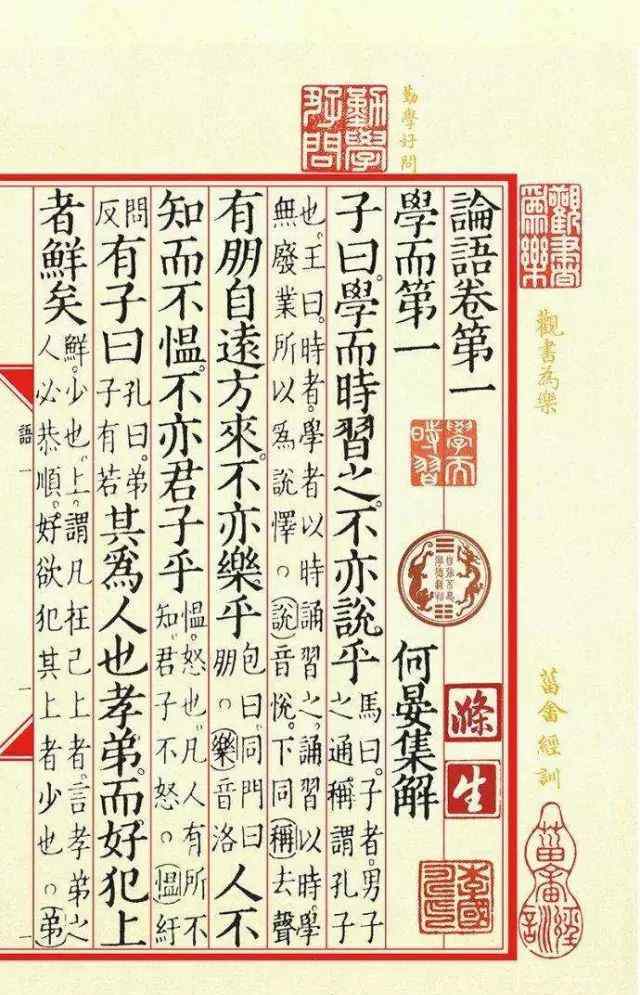 勤學好問
勤學好問
觀書爲樂
觀書為樂
菑畬經訓
菑畬經訓
論語卷第一
學而時習
滌生
學而第一
何晏集解
子曰。學而時習之。不亦說乎
馬曰。子者。男子
之通稱謂孔子
也。王曰。時者。學者以時誦習之。誦習以時學
無廢業所以爲說懌。○(說)音悅。下同(稱)去聲
有朋自遠方來。不亦樂乎
包曰。同門曰
朋。○(樂)音洛
人不
知而不慍。不亦君子乎
慍。怒也。凡人有所不
知君子不怒。○(慍)紆
問
反
有子曰
孔曰。弟
子有若
其爲人也孝弟。而好犯上
者鮮矣
鮮。少也。上。謂凡在己上者。言孝弟之
人必恭順。好欲犯其上者少也。○(弟)
語一
一